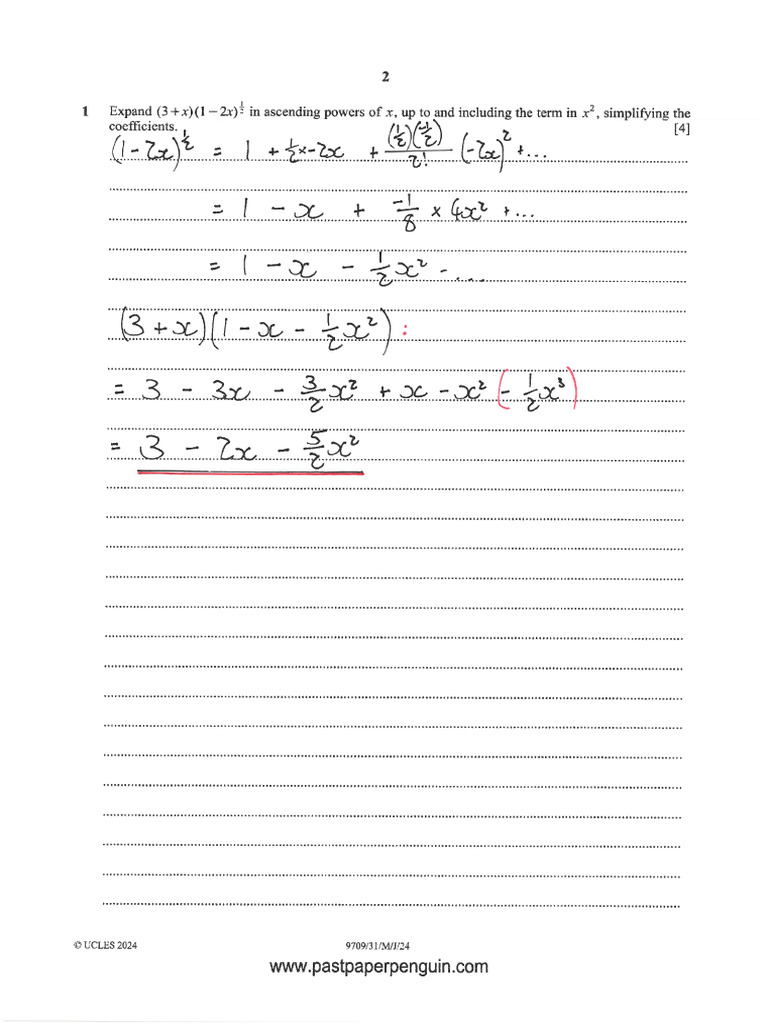 2
1 Expand (3 + x)(1 − 2x)^½ in ascending powers of x, up to and including the term in x², simplifying the
coefficients. [4]
(1 − 2x)^½ = 1 + ½ × −2x + (½)(−½)/2! (−2x)² + ...
= 1 − x + −1/8 × 4x² + ...
= 1 − x − ½x² − ...
(3 + x)(1 − x − ½x²) :
= 3 − 3x − 3/2 x² + x − x² (− ½x³)
= 3 − 2x − 5/2 x²
© UCLES 2024 9709/31/M/J/24
www.pastpaperpenguin.com